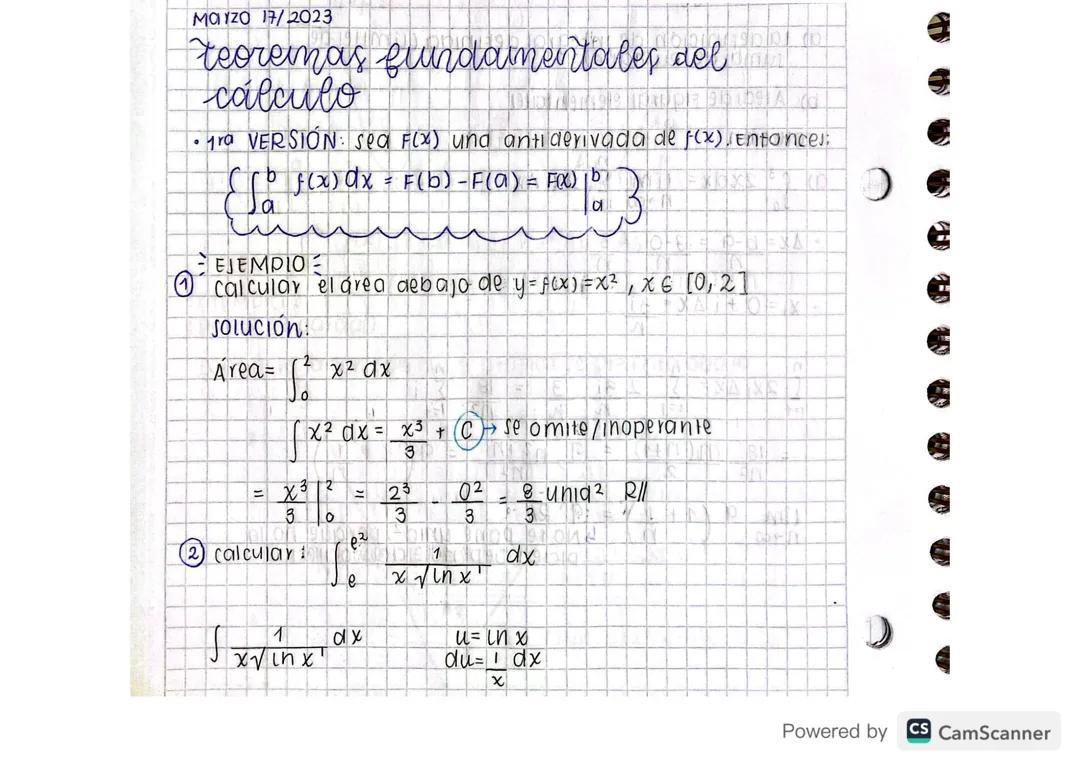 Marzo 17/2023
Teoremas fundamentales del
cálculo
• 1ra VERSIÓN: sea F(x) una antiderivada de f(x). Entonces:
{∫_a^b f(x) dx = F(b) - F(a) = F(x) |_a^b}
EJEMPLO
① calcular el área debajo de y = f(x) = x², x ∈ [0, 2]
Solución:
Área = ∫_0^2 x² dx
∫ x² dx = x³/3 + C → se omite/inoperante
= x³/3 |_0^2 = 2³/3 - 0²/3 = 8/3 unid² R//
② calcular: ∫_e^e² 1/(x √ln x) dx
∫ 1/(x √ln x) dx u = ln x
du = 1/x dx
Powered by CS CamScanner